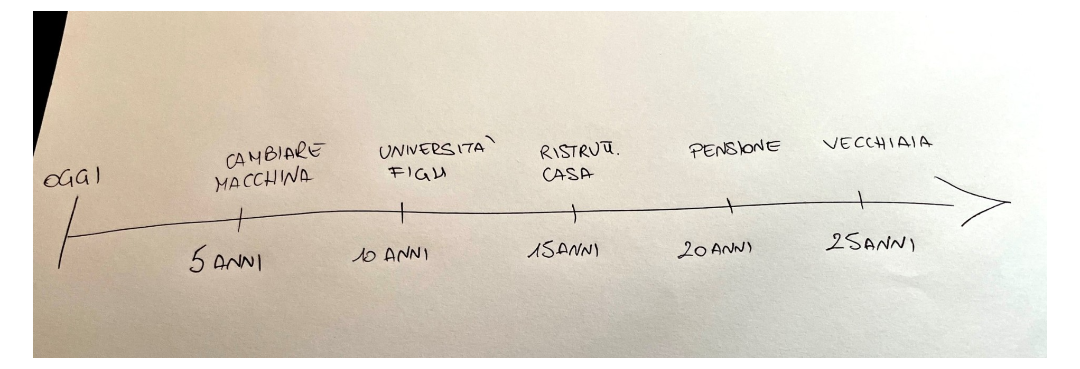 OGGI
CAMBIARE
MACCHINA
UNIVERSITA`
FIGLI
RISTRUTT.
CASA
PENSIONE
VECCHIAIA
5 ANNI
10 ANNI
15 ANNI
20 ANNI
25 ANNI